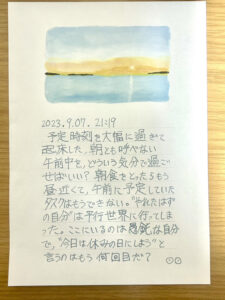 2023.9.07. 21:19
予定時刻を大幅に過ぎて
起床した。朝とも呼べない
午前中を、どういう気分で過ご
せばいい？朝食をとったらもう
昼近くて、午前に予定していた
タスクはもうできない。"やれたはず
の自分"は平行世界に行ってしま
った。ここにいるのは愚鈍な自分
で、"今日は休みの日にしよう"と
言うのはもう何回目だ？